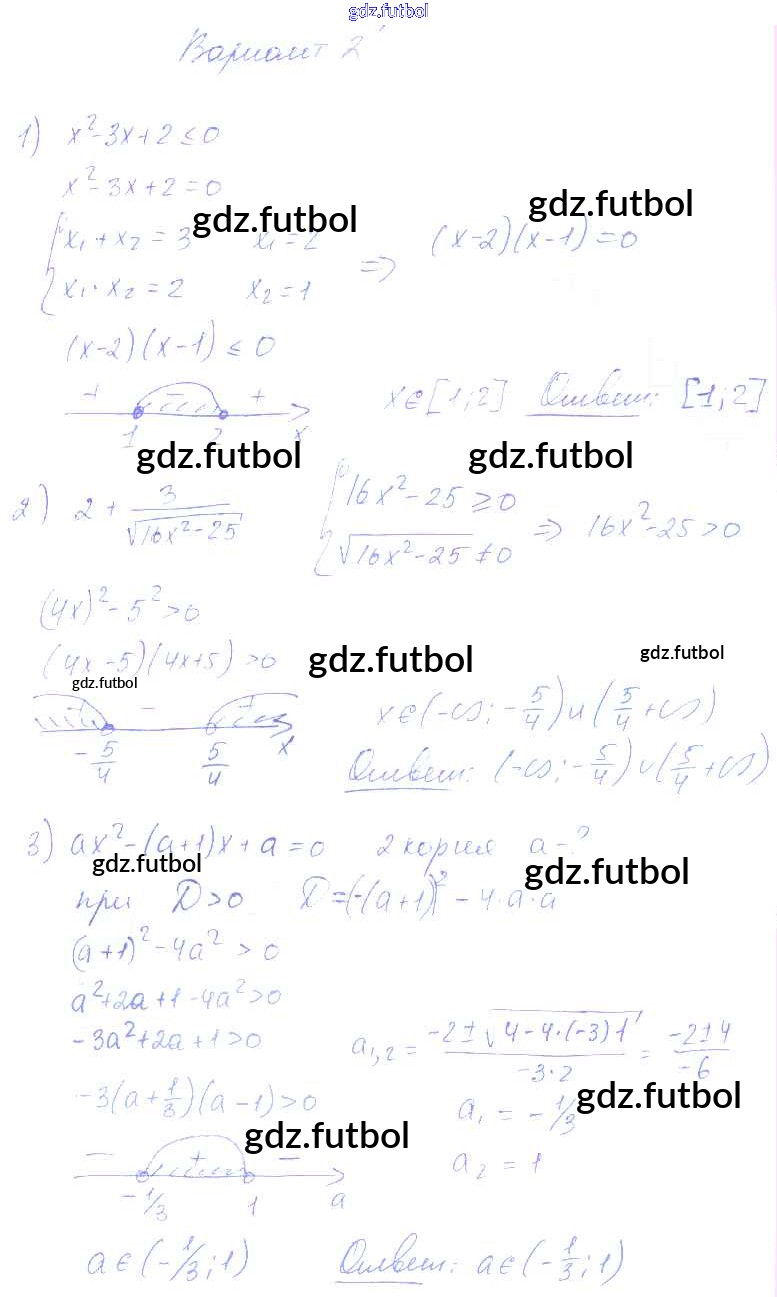 gdz.futbol
Вариант 2
1) x²-3x+2≤0
x²-3x+2=0
gdz.futbol
gdz.futbol
x₁+x₂=3 x₁=2
x₁·x₂=2 x₂=1 => (x-2)(x-1)=0
(x-2)(x-1)≤0
+ - +
1 2 x
x∈[1;2] Ответ: [1;2]
gdz.futbol gdz.futbol
2) 2+3/√(16x²-25) 16x²-25≥0
√(16x²-25)≠0 => 16x²-25>0
(4x)²-5²>0
(4x-5)(4x+5)>0
gdz.futbol gdz.futbol
gdz.futbol
+ - +
-5/4 5/4 x
x∈(-∞;-5/4)∪(5/4+∞)
Ответ: (-∞;-5/4)∪(5/4+∞)
3) ax²-(a+1)x+a=0 2 корня a-?
gdz.futbol gdz.futbol
при D>0 D=(-(a+1))²-4·a·a
(a+1)²-4a²>0
a²+2a+1-4a²>0
-3a²+2a+1>0
a₁,₂=(-2±√(4-4·(-3)1))/(-3·2)=(-2±4)/(-6)
-3(a+1/3)(a-1)>0
a₁=-1/3
gdz.futbol
gdz.futbol
a₂=1
- + -
-1/3 1 a
a∈(-1/3;1) Ответ: a∈(-1/3;1)